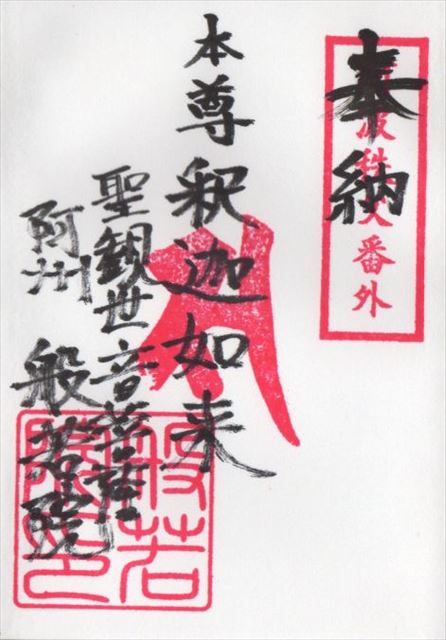 奉納
阿波秩父番外
本尊釈迦如来
聖観世音菩薩
阿州 般若院
般若院印